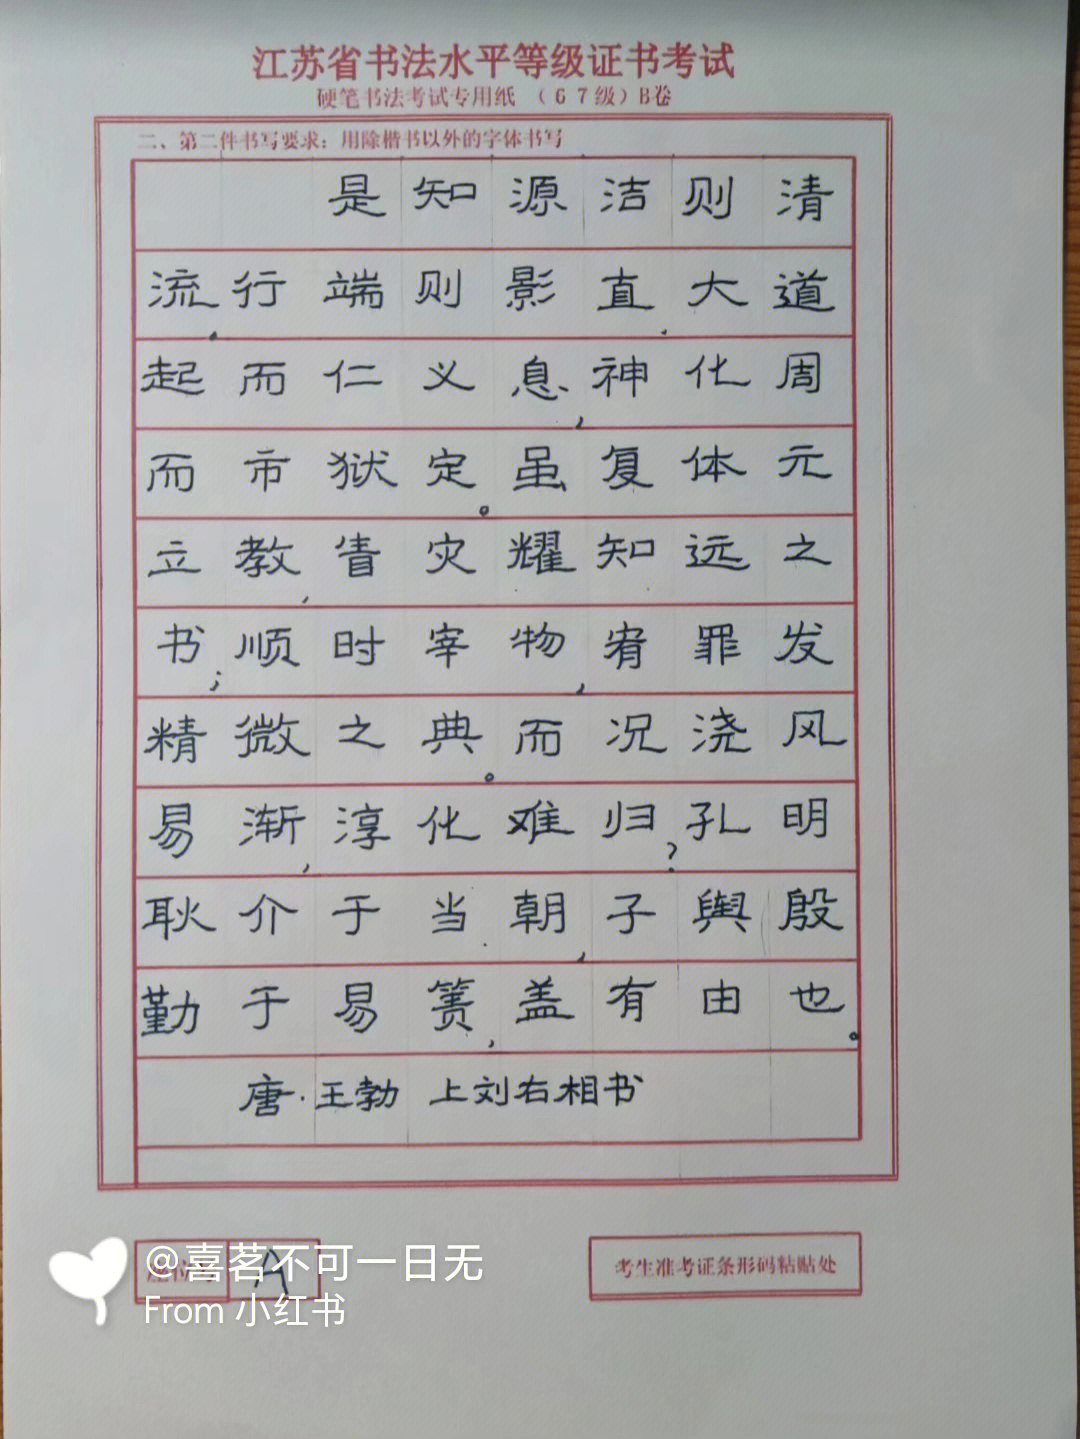 江苏省书法水平等级证书考试
硬笔书法考试专用纸 （67级）B卷
二、第二件书写要求：用除楷书以外的字体书写
是知源洁则清
流。行端则影直，大道
起而仁义息，神化周
而市狱定。虽复体元
立教，眚灾耀知远之
书；顺时宰物，宥罪发
精微之典。而况浇风
易渐，淳化难归？孔明
耿介于当朝，子舆殷
勤于易箦，盖有由也。
唐·王勃 上刘右相书
A
考生准考证条形码粘贴处
@喜茗不可一日无
From 小红书